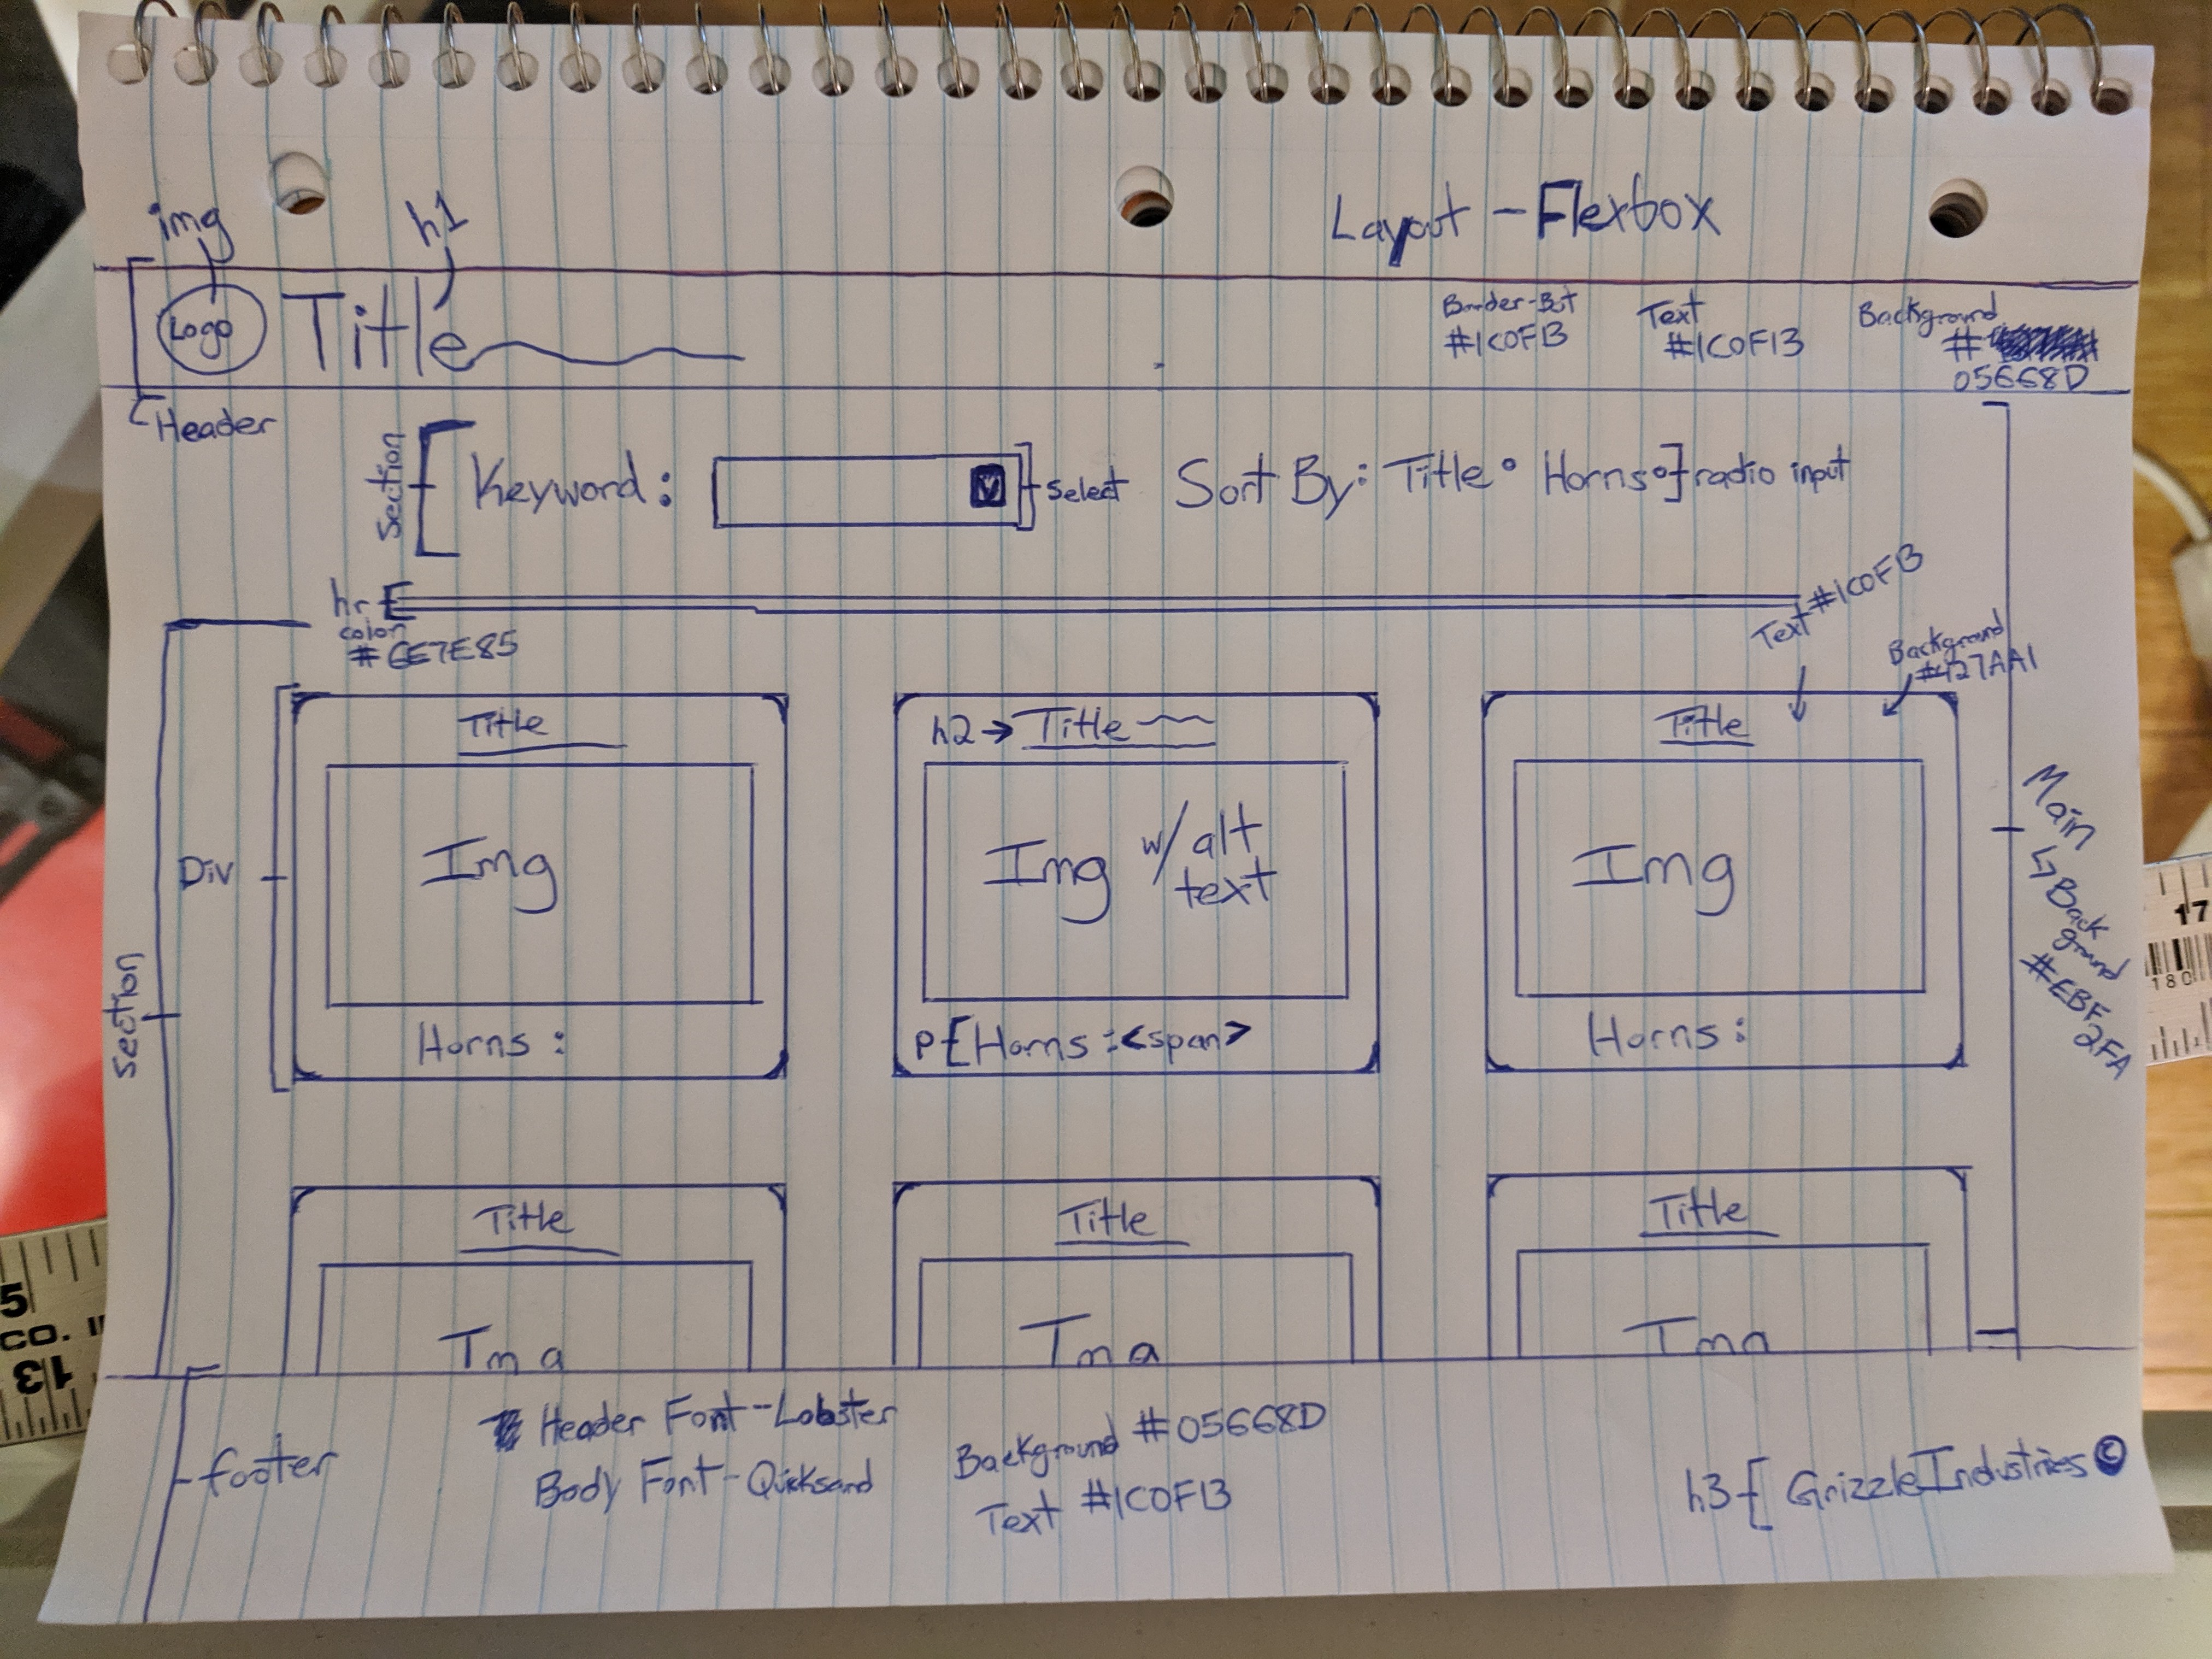 Layout - Flexbox
img
h1
Logo
Title
Border-Bot
#1C0F13
Text
#1C0F13
Background
#
05668D
Header
Section
Keyword:
V
select
Sort By: Title Horns radio input
hr
color
#6E7E85
Text #1C0F13
Background
#427AA1
Section
Div
Title
Img
Horns :
h2 → Title
Img w/ alt
text
p [Horns :<span>
Title
Img
Horns :
Main
↳ Back
ground
#EBF
2FA
Title
Img
Title
Img
Title
Img
footer
Header Font - Lobster
Body Font - Quicksand
Background #05668D
Text #1C0F13
h3 { Grizzle Industries ©
17
180
5
CO.
13